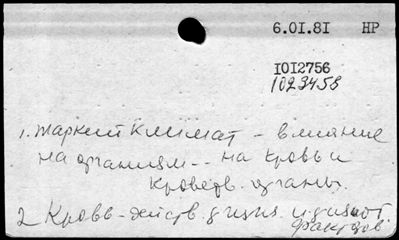 6.01.81 НР
1012756
1023458
1. Жаркий климат - влияние
на организм -- на кровь и
кроветв. органы.
2. Кровь - действ. физич.
факторов.